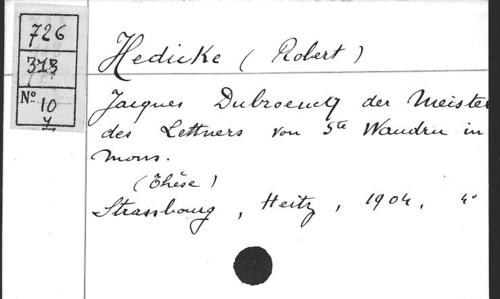 726
313
Nº 10
Hedicke (Robert)
Jacques Dubroeucq der Meister
des Lettners von Ste Waudru in
Mons.
(Thèse)
Strassbourg, Heitz, 1904, 4°